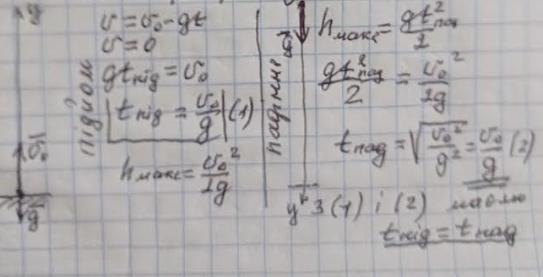 y
v̄₀
ḡ
підйом
v = v₀ - gt
v = 0
gtпід = v₀
tпід = v₀/g (1)
hмакс = v₀²/2g
падіння
ḡ
y
hмакс = gt²пад/2
gt²пад/2 = v₀²/2g
tпад = √(v₀²/g²) = v₀/g (2)
З (1) і (2) маємо
tпід = tпад